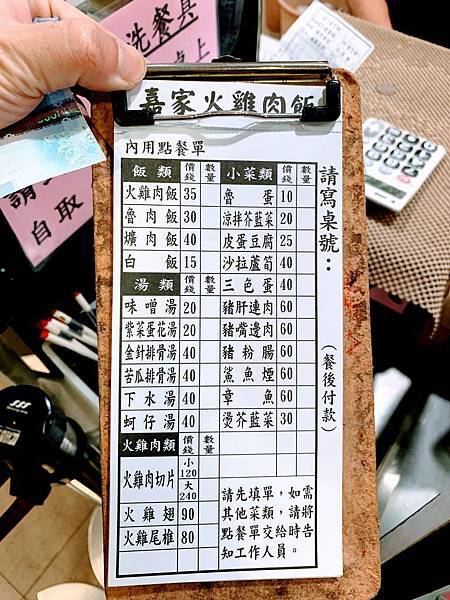 洗餐具
桌上
自取
嘉家火雞肉飯
內用點餐單
請寫桌號：
（餐後付款）
飯類 價錢 數量
火雞肉飯 35
魯肉飯 30
爌肉飯 40
白飯 15
湯類 價錢 數量
味噌湯 20
紫菜蛋花湯 20
金針排骨湯 40
苦瓜排骨湯 40
下水湯 40
蚵仔湯 40
火雞肉類 價錢 數量
火雞肉切片 小120 大240
火雞翅 90
火雞尾椎 80
小菜類 價錢 數量
魯蛋 10
涼拌芥藍菜 20
皮蛋豆腐 25
沙拉蘆筍 40
三色蛋 40
豬肝連肉 60
豬嘴邊肉 60
豬粉腸 60
鯊魚煙 60
章魚 60
燙芥藍菜 30
請先填單，如需
其他菜類，請將
點餐單交給時告
知工作人員。